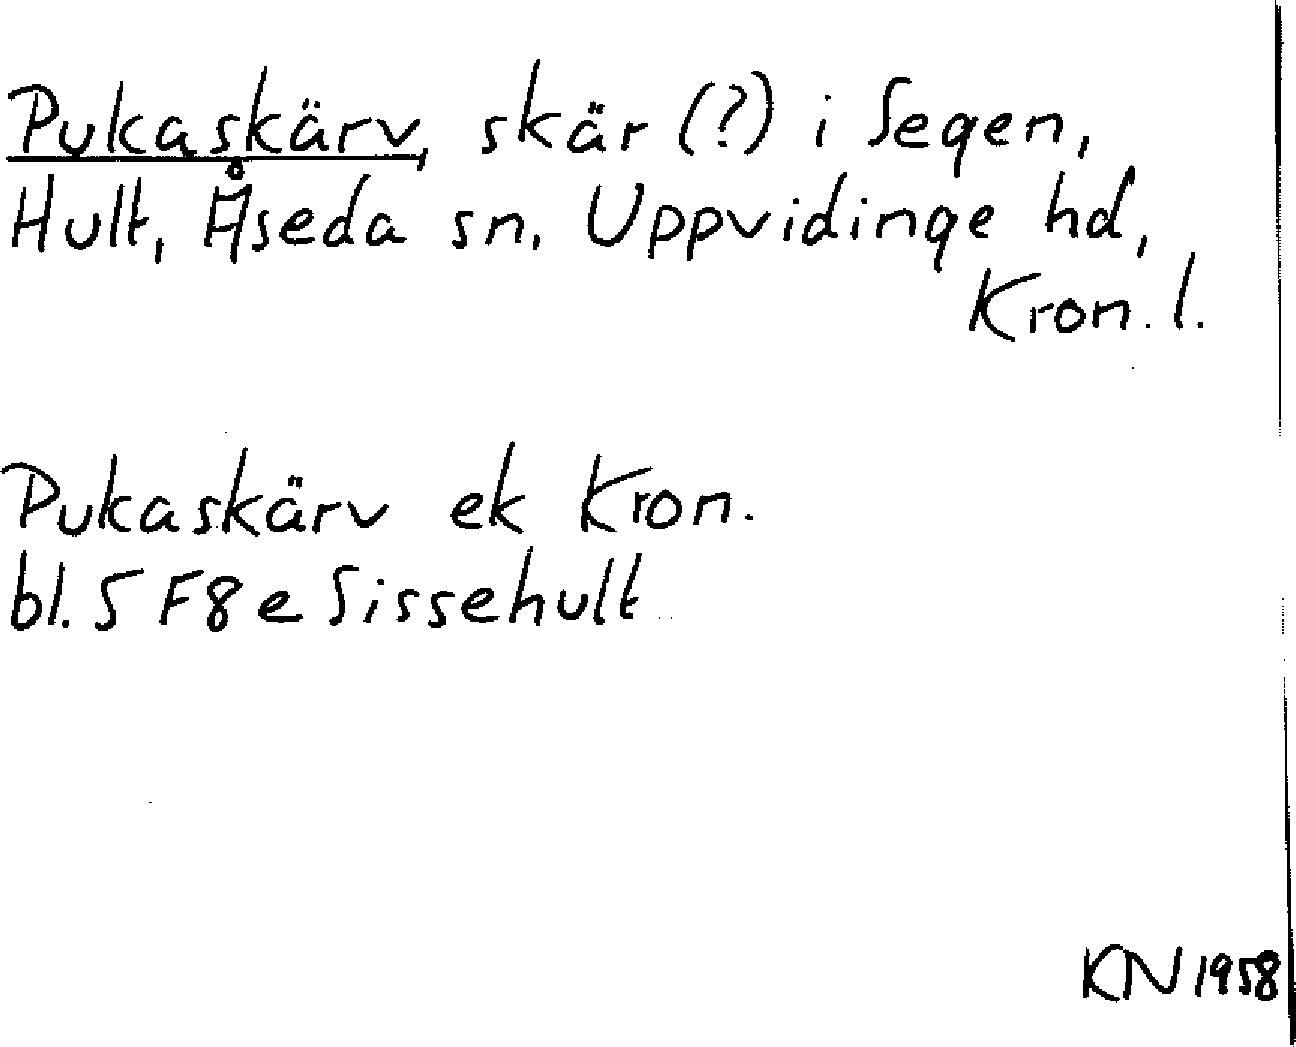 Pukaskärv, skär (?) i Segen,
Hult, Åseda sn, Uppvidinge hd,
Kron. l.
Pukaskärv ek Kron.
bl. 5 F8e Sissehult
KN 1958